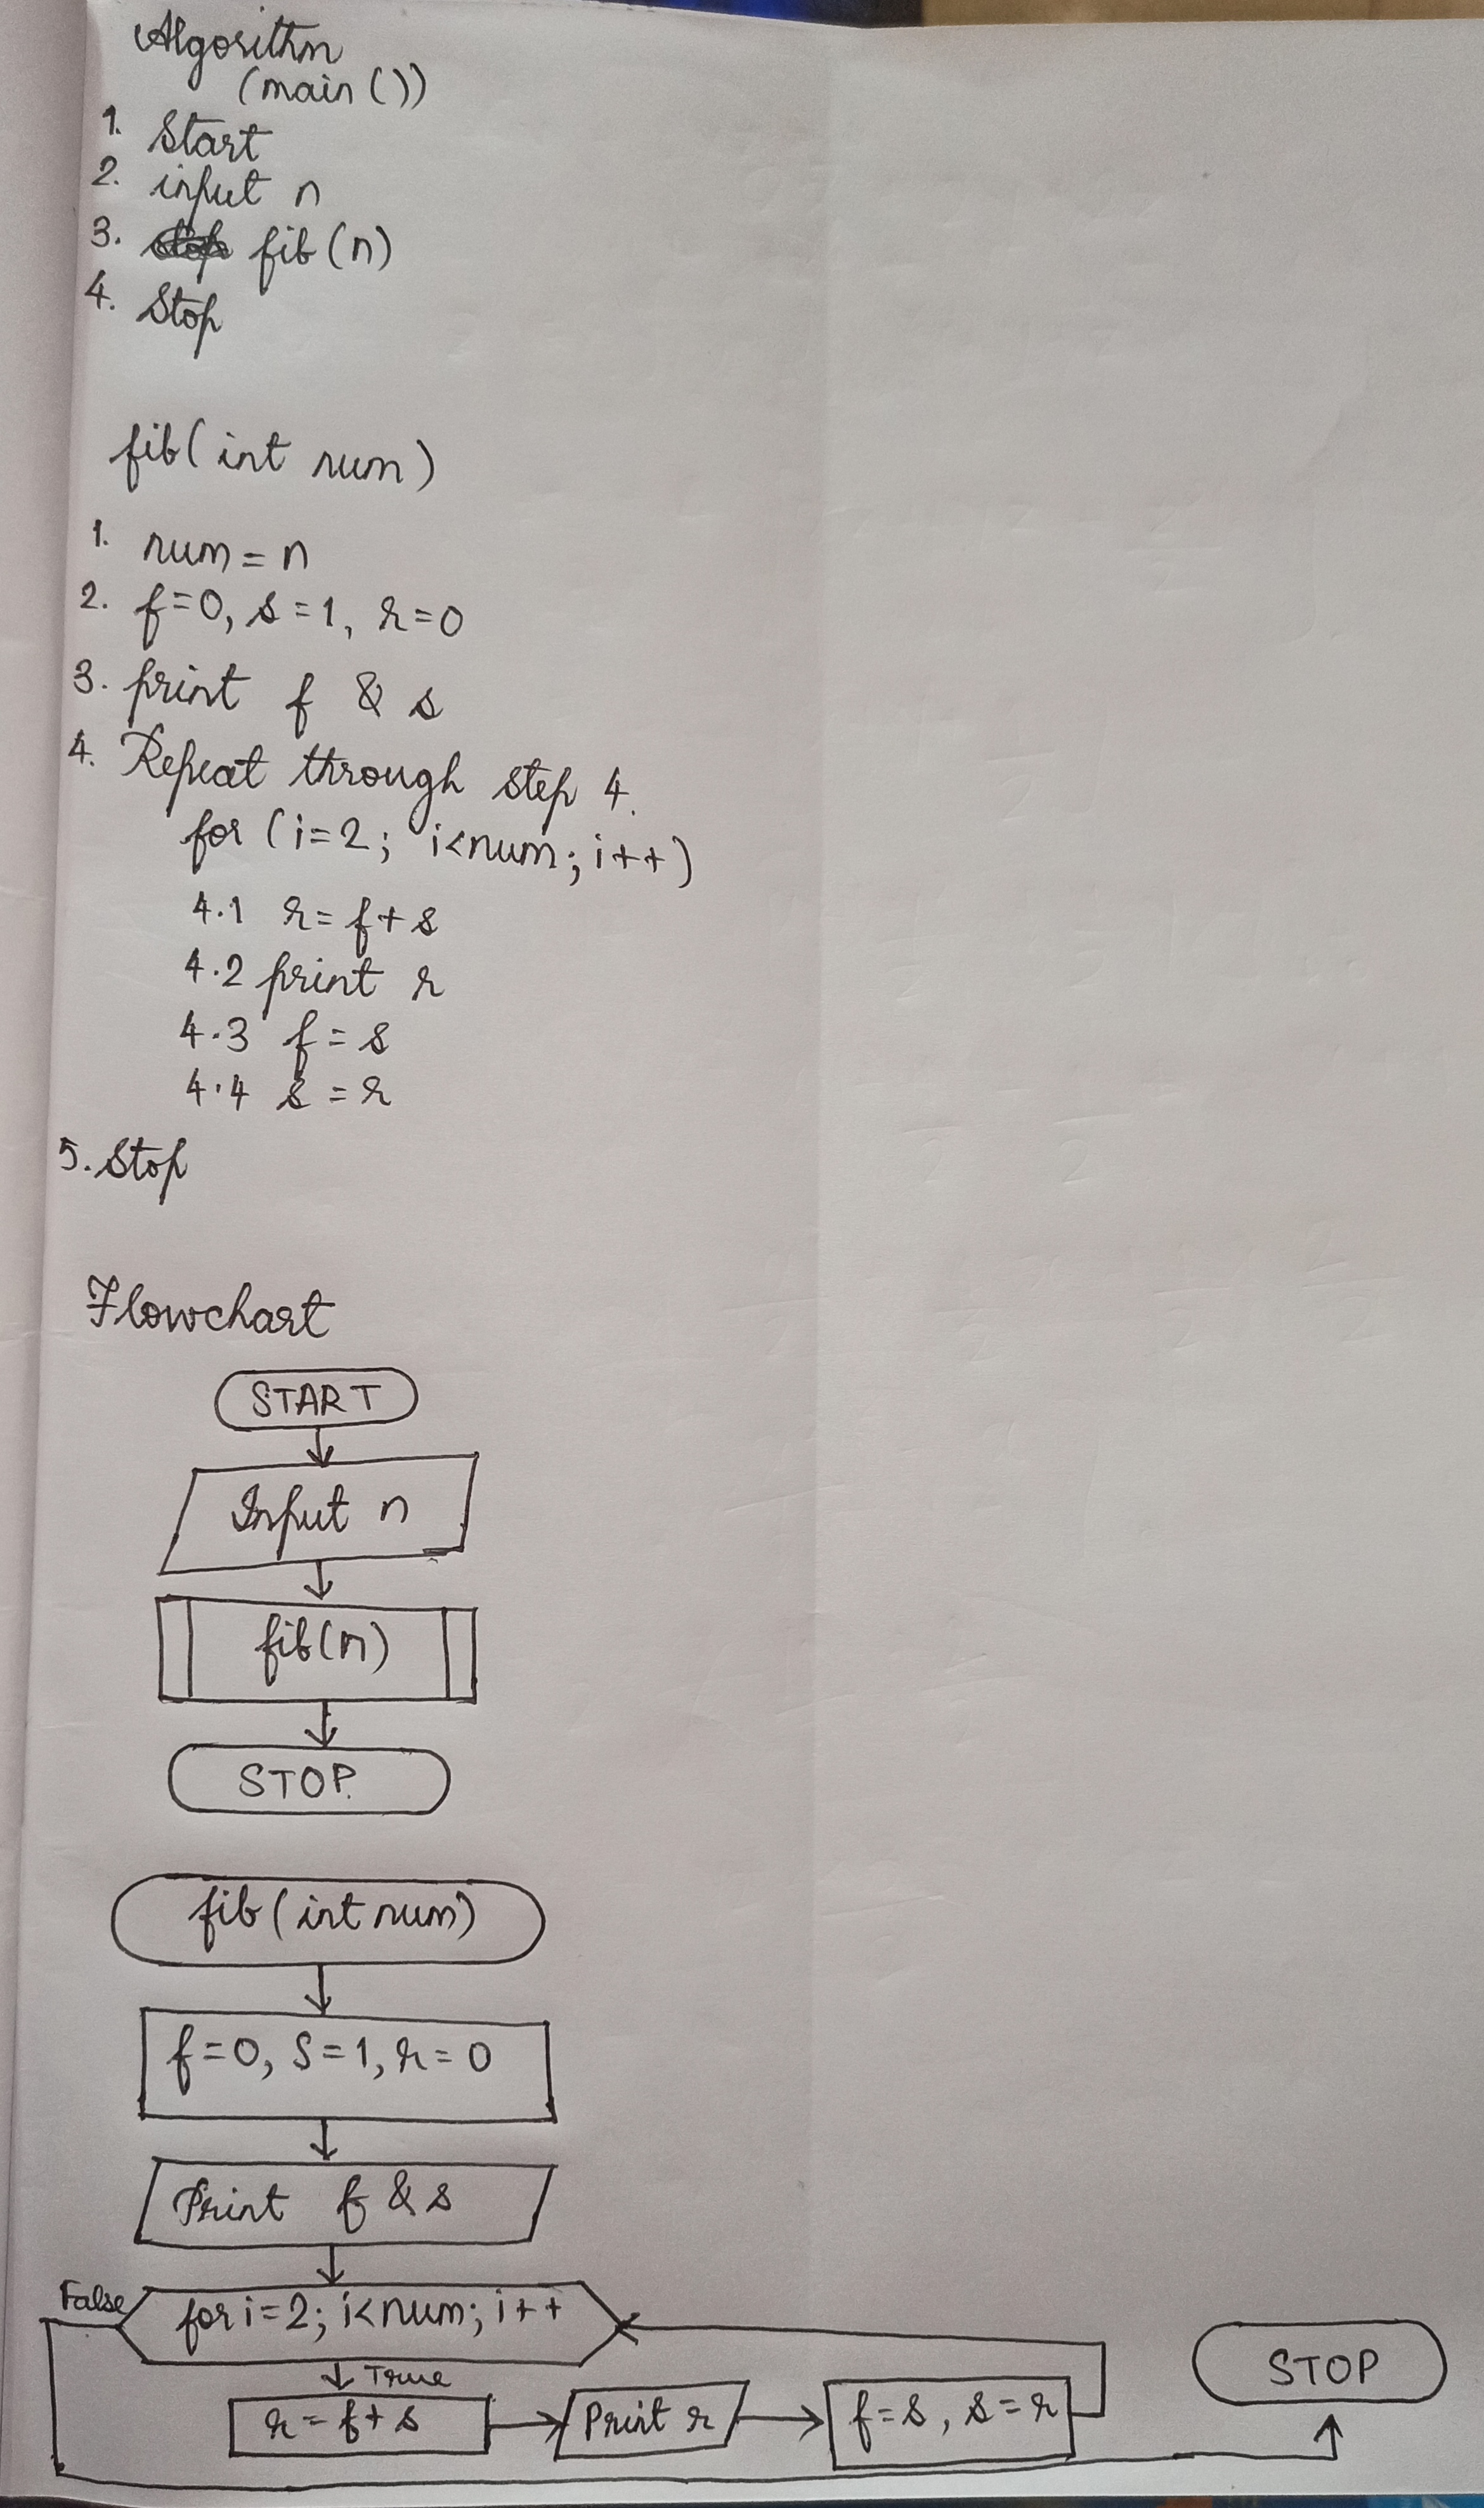 Algorithm
(main ())
1. Start
2. input n
3. fib (n)
4. Stop
fib( int num )
1. num = n
2. f=0, s=1, r=0
3. print f & s
4. Repeat through step 4.
for ( i=2; i<num; i++)
4.1 r= f+ s
4.2 print r
4.3 f = s
4.4 s = r
5. Stop
Flowchart
START
Input n
fib(n)
STOP.
fib (int num)
f=0, S=1, r=0
Print f & s
False
for i=2; i<num; i++
True
r = f+s
Print r
f=s, s=r
STOP